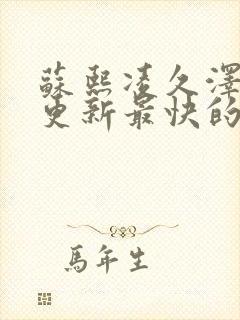 蘇熙凌久澤
更新最快的
馬年生